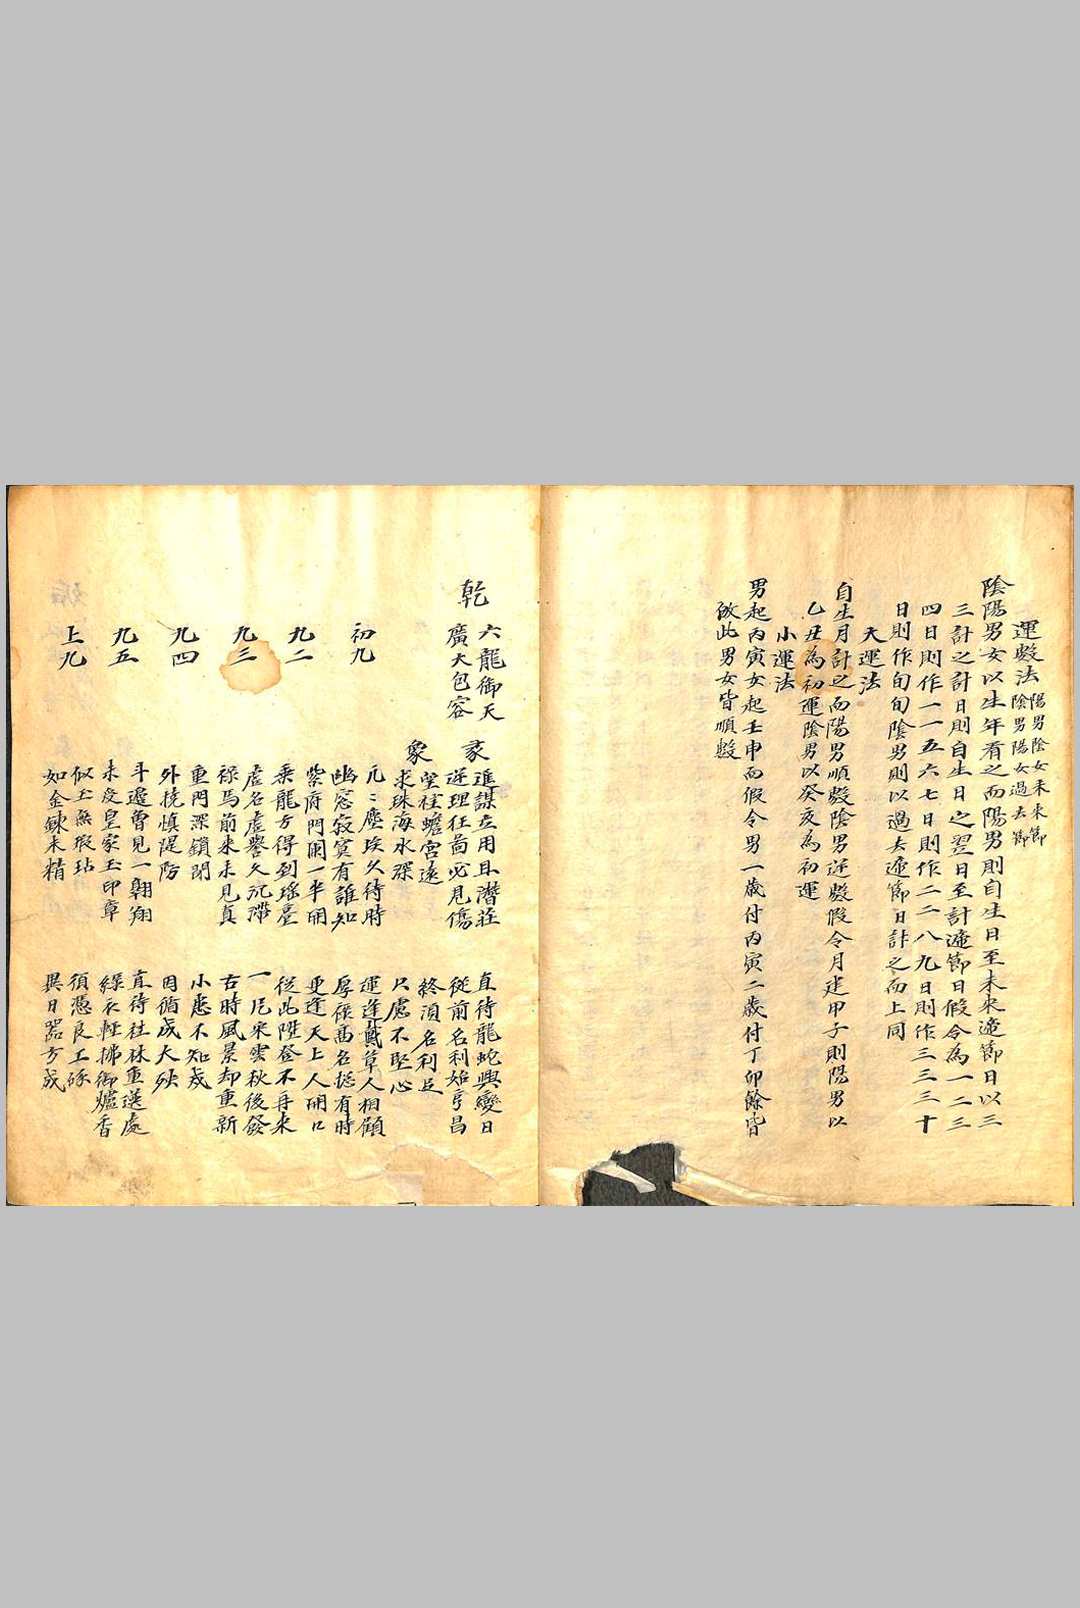 運數法 陽男陰女未來節
陰男陽女過去節
陰陽男女以生年看之而陽男則自生日至未來逢節日以三
三計之計日則自生日之翌日至計逢節日假令為一二三
四日則作一一五六七日則作二二八九日則作三三三十
日則作旬旬陰男則以過去逢節日計之而上同
大運法
自生月計之而陽男順數陰男逆數假令月建甲子則陽男以
乙丑為初運陰男以癸亥為初運
小運法
男起丙寅女起壬申而假令男一歲付丙寅二歲付丁卯餘皆
倣此男女皆順數
乾
六龍御天
廣大包容
彖
進謀立用且潛莊 直待龍蛇興變日
逆理狂啚必見傷 從前名利始亨昌
象
望桂蟾宮遠 終須名利足
求珠海水深 只慮不堅心
初九
兀〻塵埃久待時 運逢戴草人相顧
幽窓寂寞有誰知 厚祿高名掟有時
九二
紫府門闌一半開 更逢天上人開口
乘龍方得到瑤臺 從此陞登不再來
九三
虛名虛譽久沉滯 一片采雲秋後發
祿馬前來未見真 古時風景却重新
九四
重門深鎖閉 小患不知戒
外撓慎隄防 因循成大殃
九五
斗邊曾見一翱翔 直待社林重送處
未受皇家玉印章 綠衣輕拂御爐香
上九
似玉無瑕玷 須憑良工琢
如金鍊未精 異日器方成